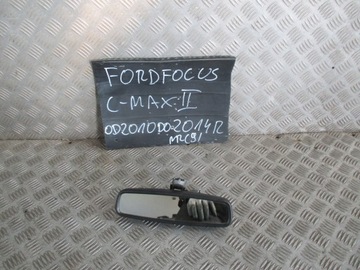 FORD FOCUS
C-MAX II
OD 2010 DO 2014R
NR (9)